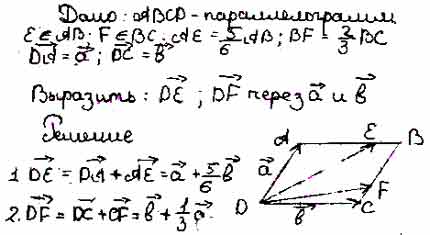 Дано: ABCD - параллелограмм
E∈AB. F∈BC: AE = 5/6 AB; BF = 2/3 BC
DA⃗ = a⃗; DC⃗ = b⃗
Выразить: DE⃗; DF⃗ через a⃗ и b⃗
Решение
1. DE⃗ = DA⃗ + AE⃗ = a⃗ + 5/6 b⃗
2. DF⃗ = DC⃗ + CF⃗ = b⃗ + 1/3 a⃗.
A E B
a⃗
F
D b⃗ C